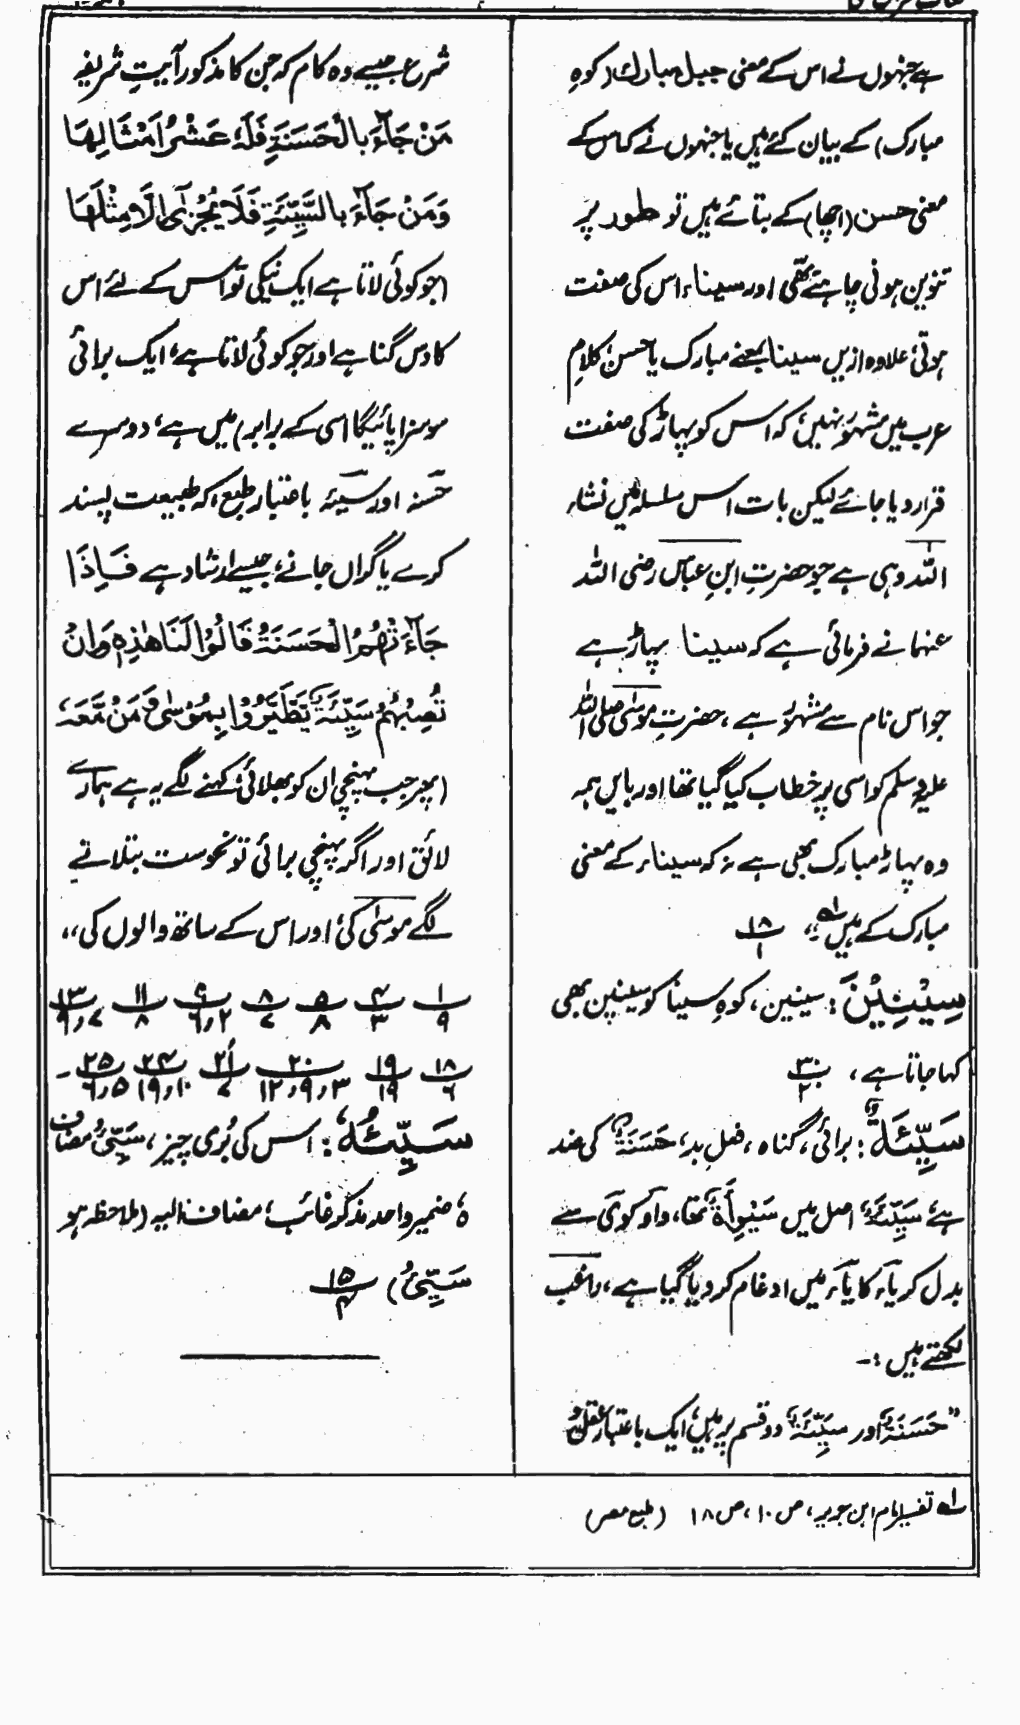 ہے جنہوں نے اس کے معنی جبل مبارک (کوہِ
مبارک) کے بیان کئے ہیں یا جنہوں نے کہ اس کے
معنی حسن (اچھا) کے بتائے ہیں تو طور پر
تنوین ہونی چاہئے تھی اور سیناء اس کی صفت
ہوتی، علاوہ ازیں سینا بمعنے مبارک یا حسن کلامِ
عرب میں مشہور نہیں، کہ اس کو پہاڑ کی صفت
قرار دیا جائے لیکن بات اس سلسلہ میں انشاء
اللہ وہی ہے جو حضرتِ ابنِ عباس رضی اللہ
عنہما نے فرمائی ہے کہ سینا پہاڑ ہے
جو اس نام سے مشہور ہے، حضرتِ موسیٰ صلی اللہ
علیہ وسلم کو اسی پر خطاب کیا گیا تھا اور بایں ہمہ
وہ پہاڑ مبارک بھی ہے نہ کہ سیناء کے معنی
مبارک کے ہیں ۱ھ ،، ۱۸/۱
سِیْنِیْنَ : سینین، کوہِ سینا کو سینین بھی
کہا جاتا ہے، ۳۰/۲
سَیِّئَةٌ : برائی، گناہ، فعلِ بد، حَسَنَةٌ کی ضد
ہے، سَیِّئَةٌ اصل میں سَیْوِأَةٌ تھا، واو کو یَ سے
بدل کر یآء کا یآء میں ادغام کر دیا گیا ہے، راغب
لکھتے ہیں :۔
”حَسَنَةٌ اور سَیِّئَةٌ دو قسم پر ہیں، ایک باعتبار عقل و
شرع جیسے وہ کام کہ جن کا مذکور آیتِ شریفہ
مَنْ جَآءَ بِالْحَسَنَةِ فَلَهٗ عَشْرُ اَمْثَالِهَا
وَمَنْ جَآءَ بِالسَّيِّئَةِ فَلَا يُجْزٰى اِلَّا مِثْلَهَا
(جو کوئی لاتا ہے ایک نیکی تو اس کے لئے اس
کا دس گنا ہے اور جو کوئی لاتا ہے، ایک برائی
سو سزا پائیگا اسی کے برابر) میں ہے، دوسرے
حَسنہ اور سیّئہ باعتبار طبع، کہ طبیعت پسند
کرے یا گراں جانے، جیسے ارشاد ہے فَاِذَا
جَآءَتْهُمُ الْحَسَنَةُ قَالُوْا لَنَا هٰذِهٖ وَاِنْ
تُصِبْهُمْ سَيِّئَةٌ يَّطَّيَّرُوْا بِمُوْسٰى وَمَنْ مَّعَهٗ
(پھر جب پہنچی ان کو بھلائی کہنے لگے یہ ہے ہمارے
لائق اور اگر پہنچی برائی تو نحوست بتلاتے
لگے موسیٰ کی، اور اس کے ساتھ والوں کی،،
۱/۹ ۴/۳ ۵/۸ ۸/۷ ۹/۲،۶ ۱۱/۸ ۱۳/۷،۹
۱۸/۶ ۱۹/۱۹ ۲۰/۳،۹،۱۲ ۲۱/۷ ۲۴/۱۰،۱۹ ۲۵/۵،۶ ۔
سَیِّئُهٗ : اس کی بُری چیز، سَیِّئُ مضاف
هٗ ضمیر واحد مذکر غائب، مضاف الیہ (ملاحظہ ہو
سَیِّئُ) ۱۵/۴
۱ھ تفسیر امام ابن جریر، ص ۱۰، ص ۱۸ (طبع مصر)